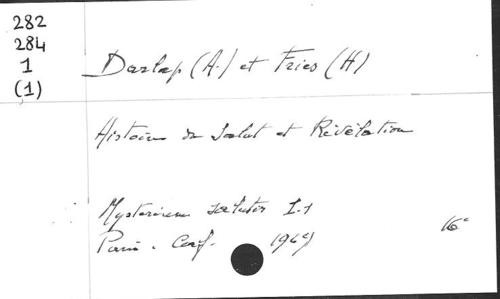 282
284
1
(1)
Darlap (A.) et Fries (H)
Histoire du Salut et Révélation
Mysterium salutis I.1
Paris. Cerf. 1969
16°